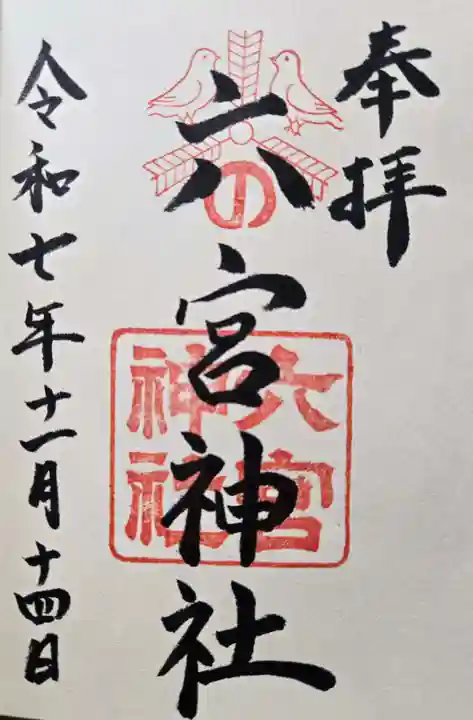 奉拝
六の宮神社
六宮
神社
令和七年十一月十四日